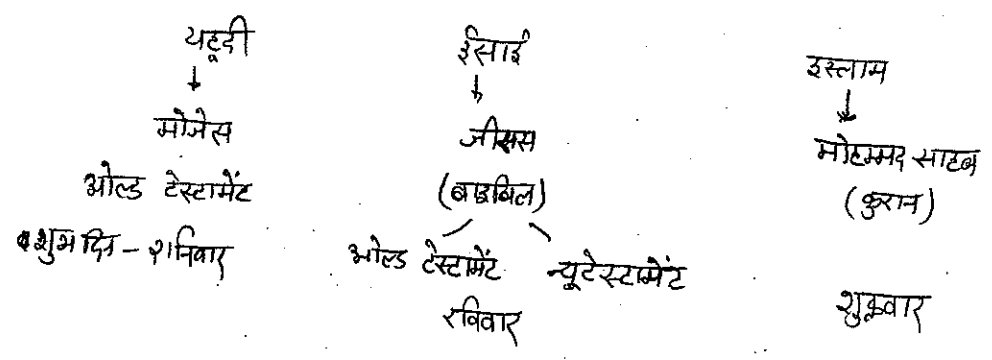 यहूदी
↓
मोजेस
ओल्ड टेस्टामेंट
शुभ दिन – शनिवार
ईसाई
↓
जीसस
(बाइबिल)
ओल्ड टेस्टामेंट न्यूटेस्टामेंट
रविवार
इस्लाम
↓
मोहम्मद साहब
(कुरान)
शुक्रवार